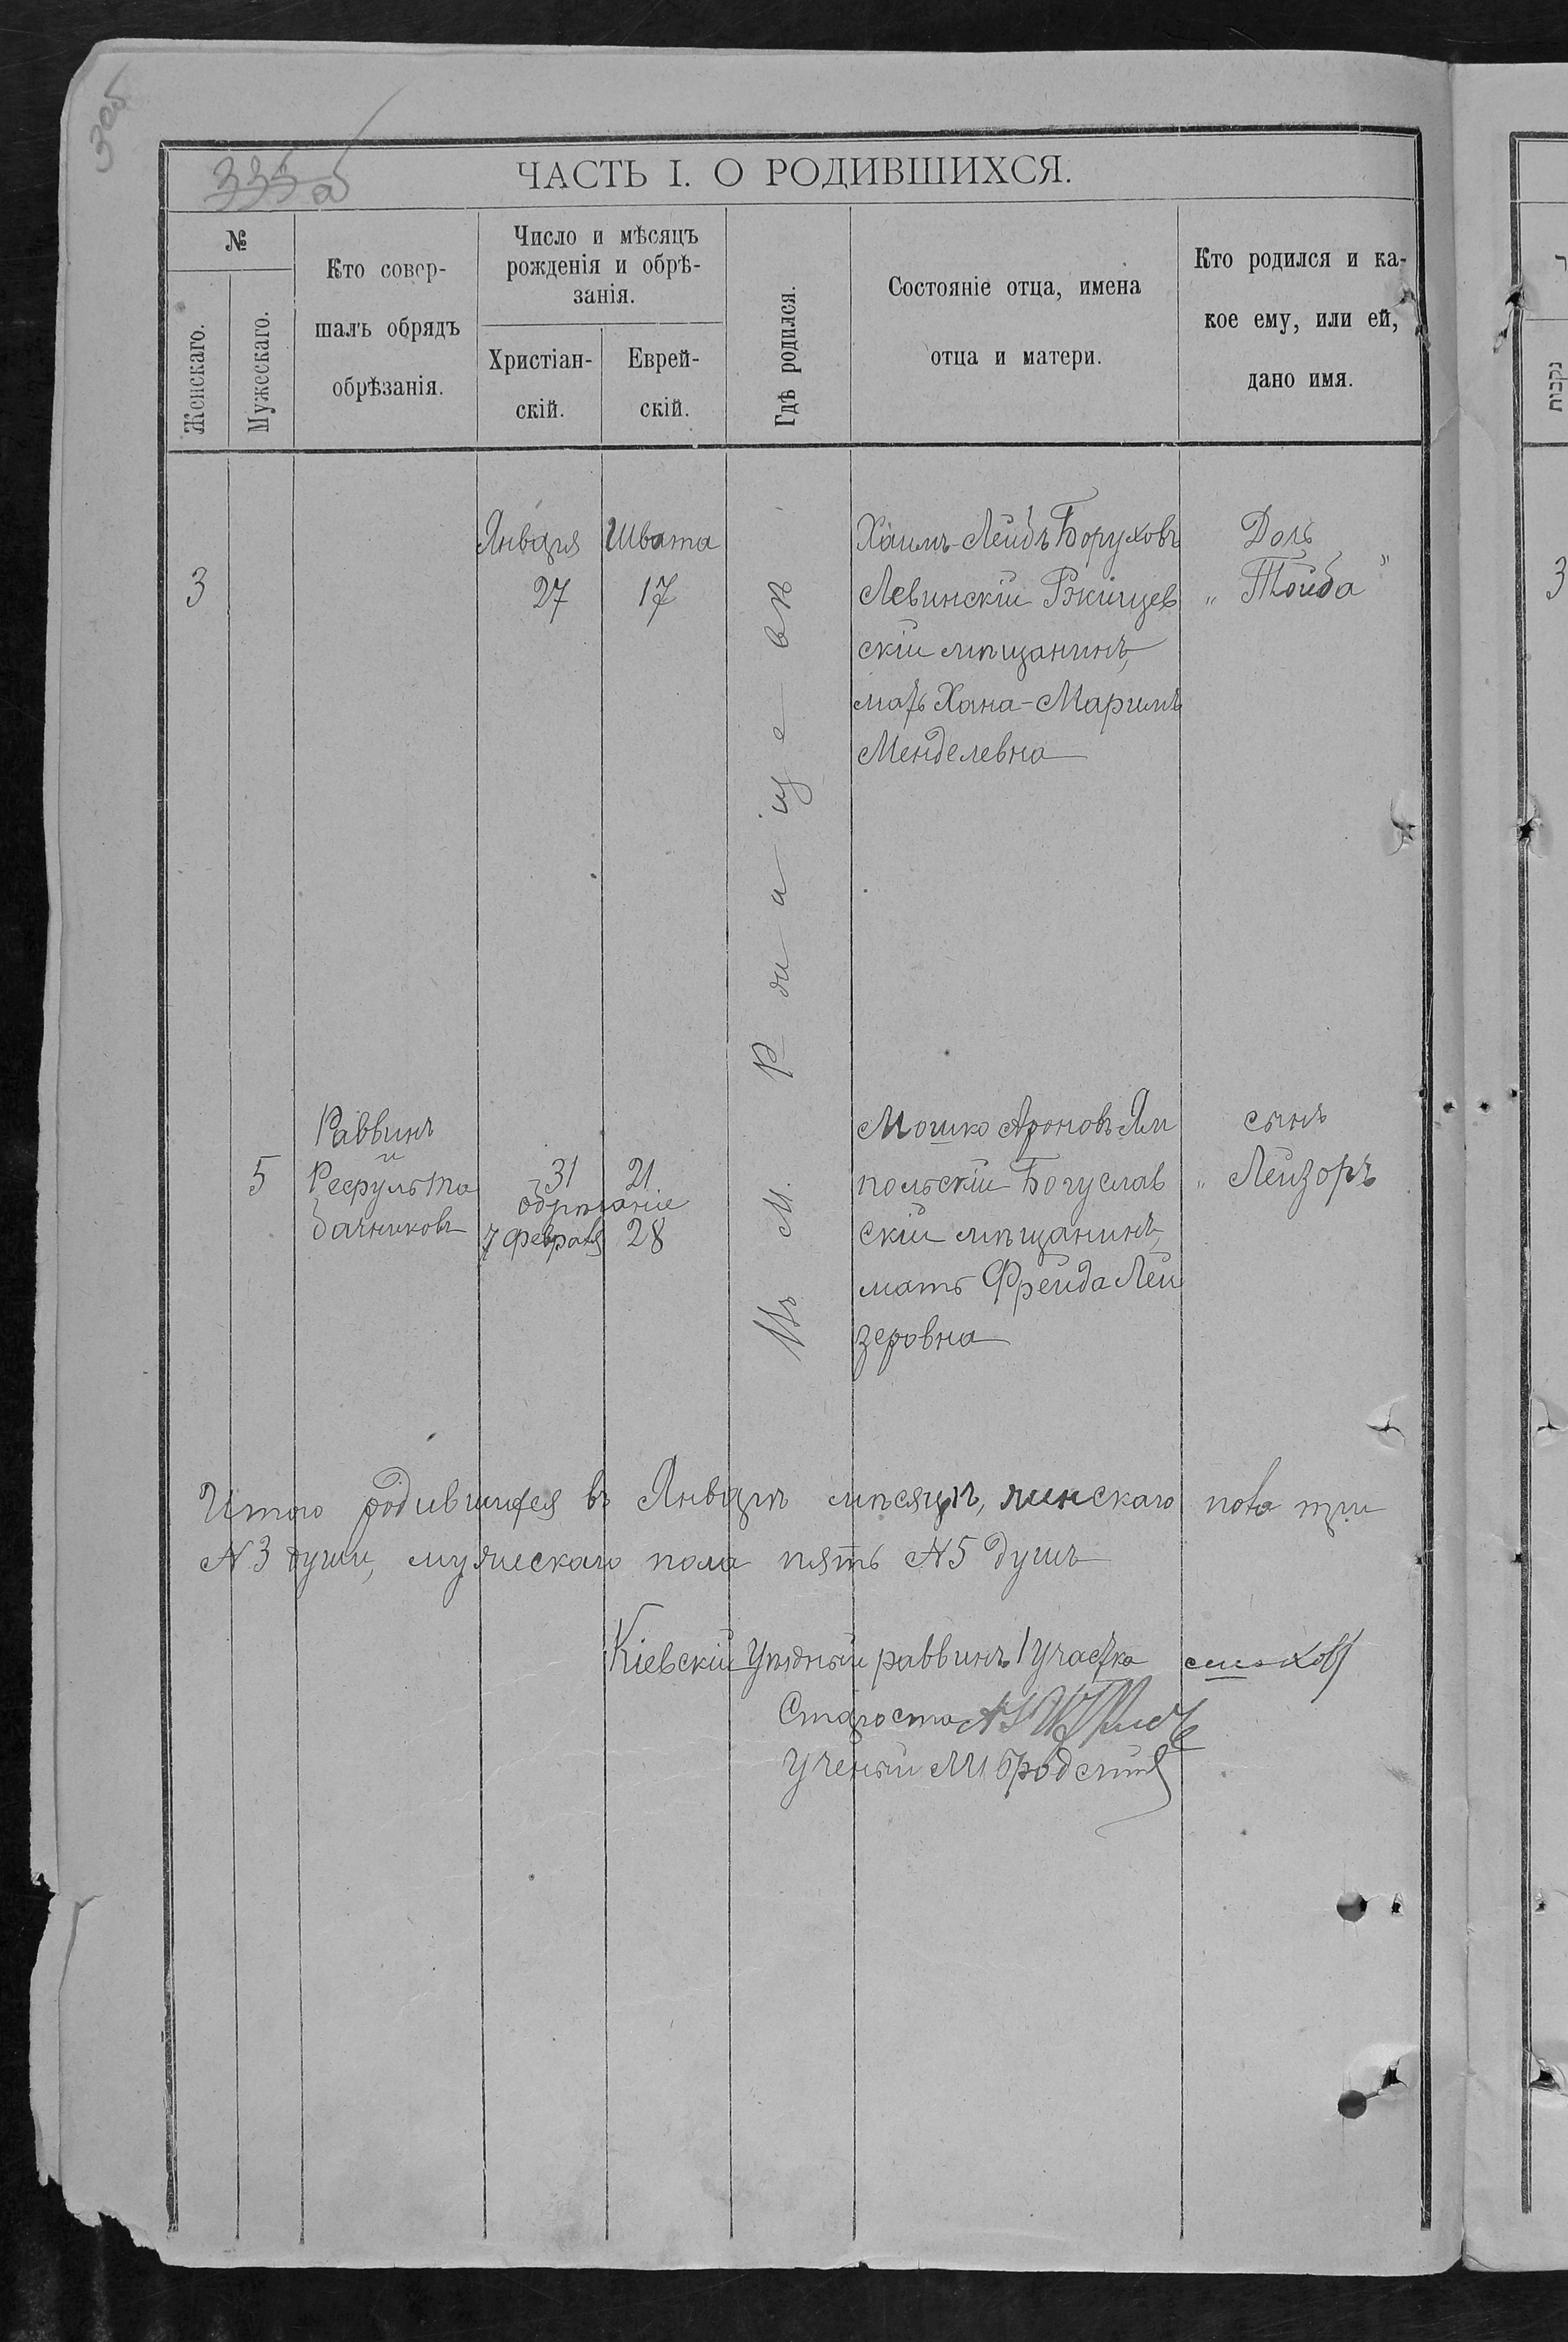 306
335 об
ЧАСТЬ I. О РОДИВШИХСЯ.
№
Женскаго.
Мужескаго.
Кто совер-
шалъ обрядъ
обрѣзанія.
Число и мѣсяцъ
рожденія и обрѣ-
занія.
Христіан-
скій.
Еврей-
скій.
Гдѣ родился.
Состояніе отца, имена
отца и матери.
Кто родился и ка-
кое ему, или ей,
дано имя.
3
Января
27
Швата
17
Въ М. Ржищевѣ
Хаимъ-Лейбъ Боруховъ
Левинскій Ржищев
скій мѣщанинъ,
мать Хана-Маримъ
Менделевна
Дочь
„ Тойба "
5
Раввинъ
й
31
21
обрѣзаніе
7 февраля 28
Мошко Ароновъ Ям
польскій Богуслав
скій мѣщанинъ,
мать Фрейда Лей
зеровна
сынъ
„ Лейзоръ
Итого родившихся въ Январѣ мѣсяцѣ, женскаго пола три
№ 3 души, мужескаго пола пять № 5 душъ
Кіевскій Уѣздный раввинъ 1 Участка
Староста
Ученый М Бродскій
3
נקבות